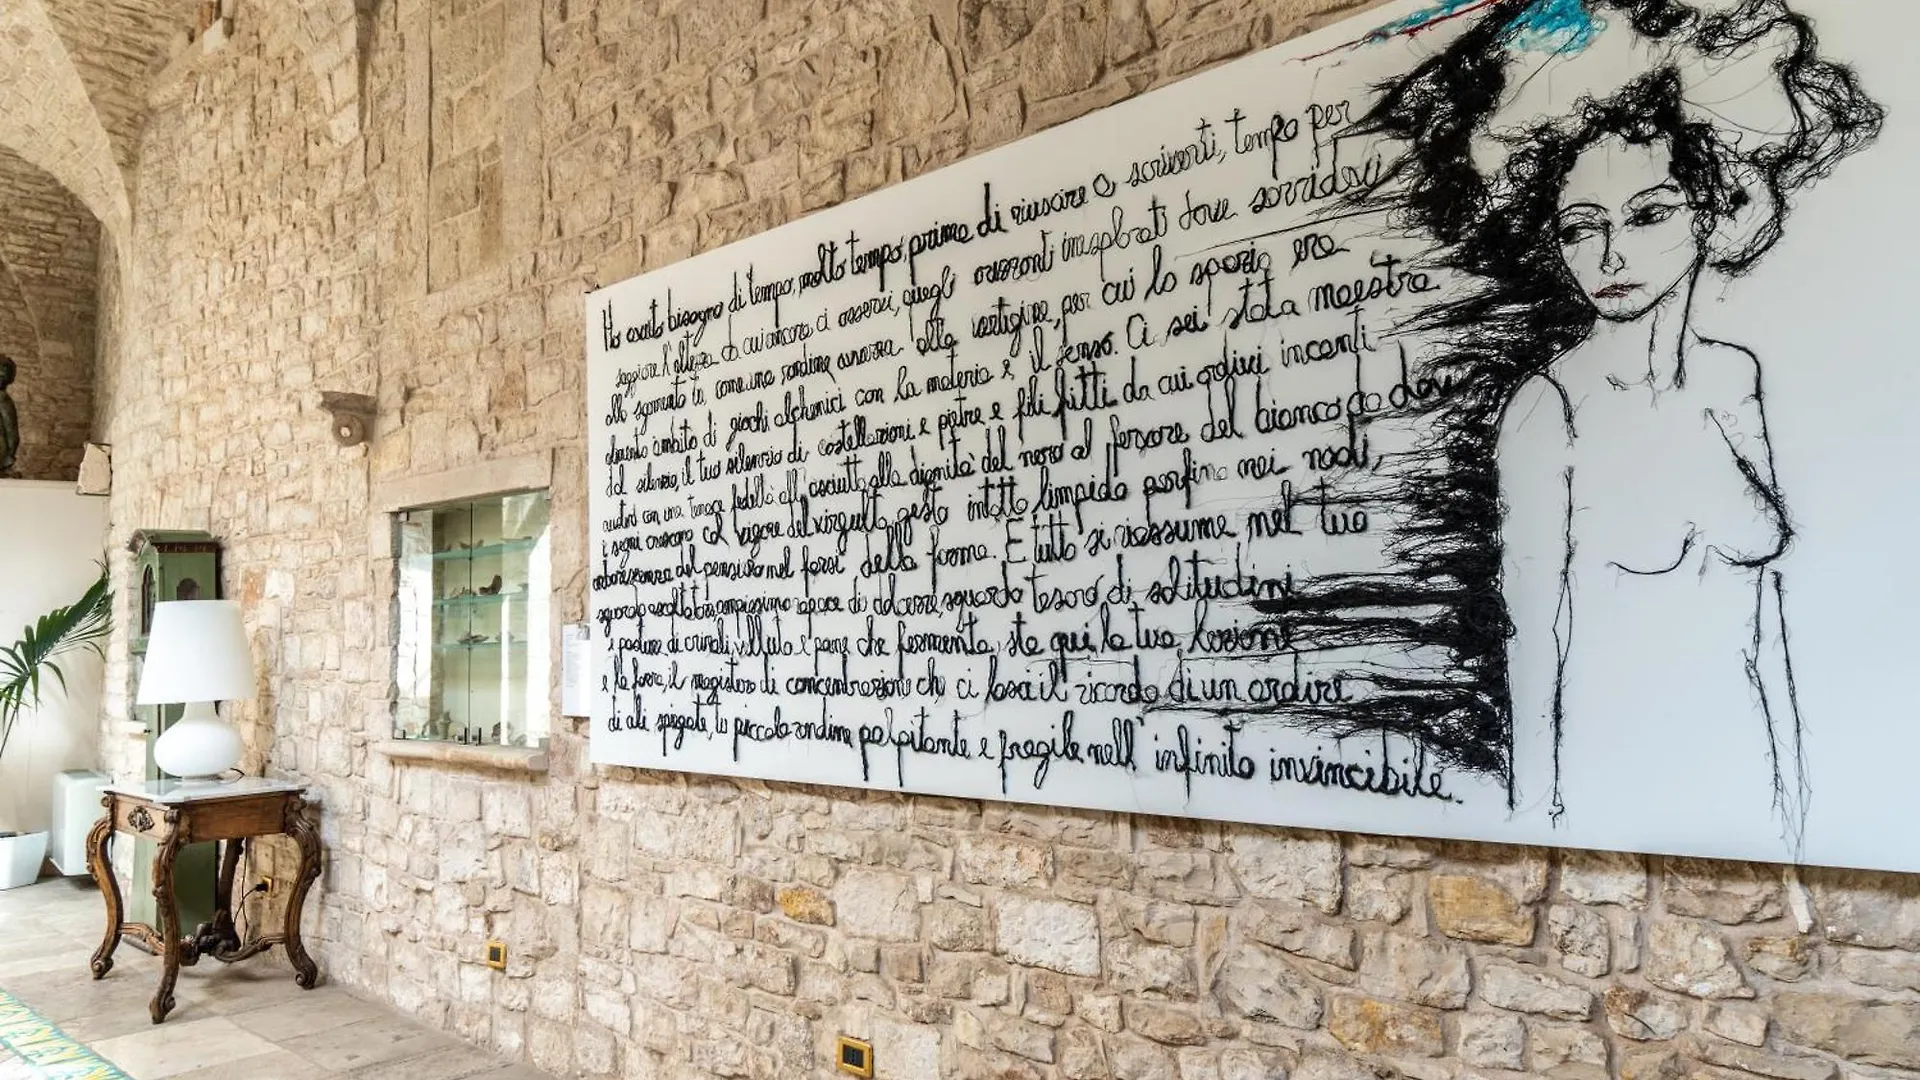 Ho avuto bisogno di tempo, molto tempo, prima di riuscire a scriverti, tempo per
saggiare l'altezza da cui ancora ci osservi, quegli orizzonti inesplorati dove sorridevi
allo sgomento tu, come una rondine avvezza alla vertigine, per cui lo spazio era
ambito di giochi alchemici con la materia e il senso. Ci sei stata maestra
dal silenzio, il tuo silenzio di costellazioni e pietre e fili fitti da cui ordivi incanti
con una tenace fedeltà all'asciutto, alla dignità del nero al fervore del bianco da dove
i segni crescono col vigore del virgulto, gesto intatto limpido perfino nei nodi,
del pensiero nel farsi della forma. E tutto si riassume nel tuo
sguardo capace di dolcezze, sguardo tesoro di solitudini
e pasture di crinali, velluto e pane che fermenta, sta qui la tua lezione
e la forza, il magistero di concentrazione che ci lascia il ricordo di un ordire
di ali spiegate, tu piccola rondine palpitante e fragile nell'infinito invincibile.